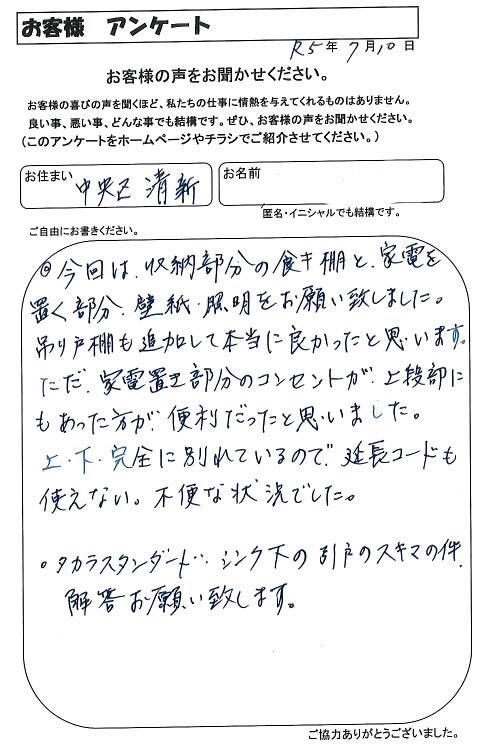 お客様 アンケート
R5年 7月10日
お客様の声をお聞かせください。
お客様の喜びの声を聞くほど、私たちの仕事に情熱を与えてくれるものはありません。
良い事、悪い事、どんな事でも結構です。ぜひ、お客様の声をお聞かせください。
(このアンケートをホームページやチラシでご紹介させてください。)
お住まい 中央区 清新
お名前
匿名・イニシャルでも結構です。
ご自由にお書きください。
◎今回は、収納部分の食キ棚と、家電を
置く部分、壁紙・照明をお願い致しました。
吊り戸棚も追加して本当に良かったと思います。
ただ、家電置き部分のコンセントが、上段部に
もあった方が便利だったと思いました。
上・下・完全に別れているので、延長コードも
使えない。不便な状況でした。
。タカラスタンダード・シンク下の引戸のスキマの件、
解答お願い致します。
ご協力ありがとうございました。